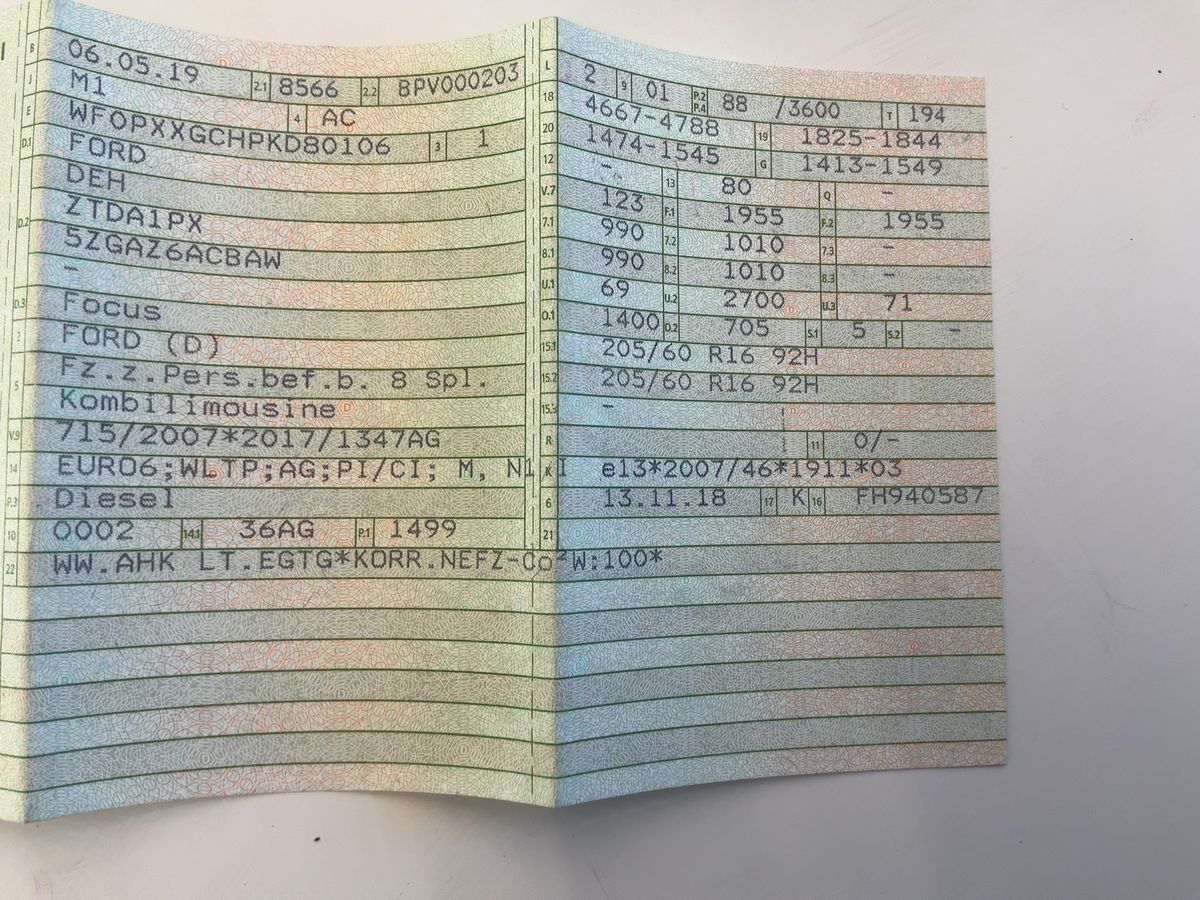 B 06.05.19 2.1 8566 2.2 BPV000203
J M1 4 AC
E WF0PXXGCHPKD80106 3 1
D.1 FORD
DEH
D.2 ZTDA1PX
5ZGAZ6ACBAW
–
D.3 Focus
2 FORD (D)
5 Fz.z.Pers.bef.b. 8 Spl.
Kombilimousine
V.9 715/2007*2017/1347AG
14 EURO6;WLTP;AG;PI/CI; M, N1 I
P.3 Diesel
10 0002 14.1 36AG P.1 1499
22 WW.AHK LT.EGTG*KORR.NEFZ-Co²W:100*
L 2 9 01 P.2 P.4 88 /3600 T 194
18 4667-4788 19 1825-1844
20 1474-1545 G 1413-1549
12 – 13 80 Q –
V.7 123 F.1 1955 F.2 1955
7.1 990 7.2 1010 7.3 –
8.1 990 8.2 1010 8.3 –
U.1 69 U.2 2700 U.3 71
O.1 1400 O.2 705 S.1 5 S.2 –
15.1 205/60 R16 92H
15.2 205/60 R16 92H
15.3 –
R 11 0/-
K e13*2007/46*1911*03
6 13.11.18 17 K 16 FH940587
21